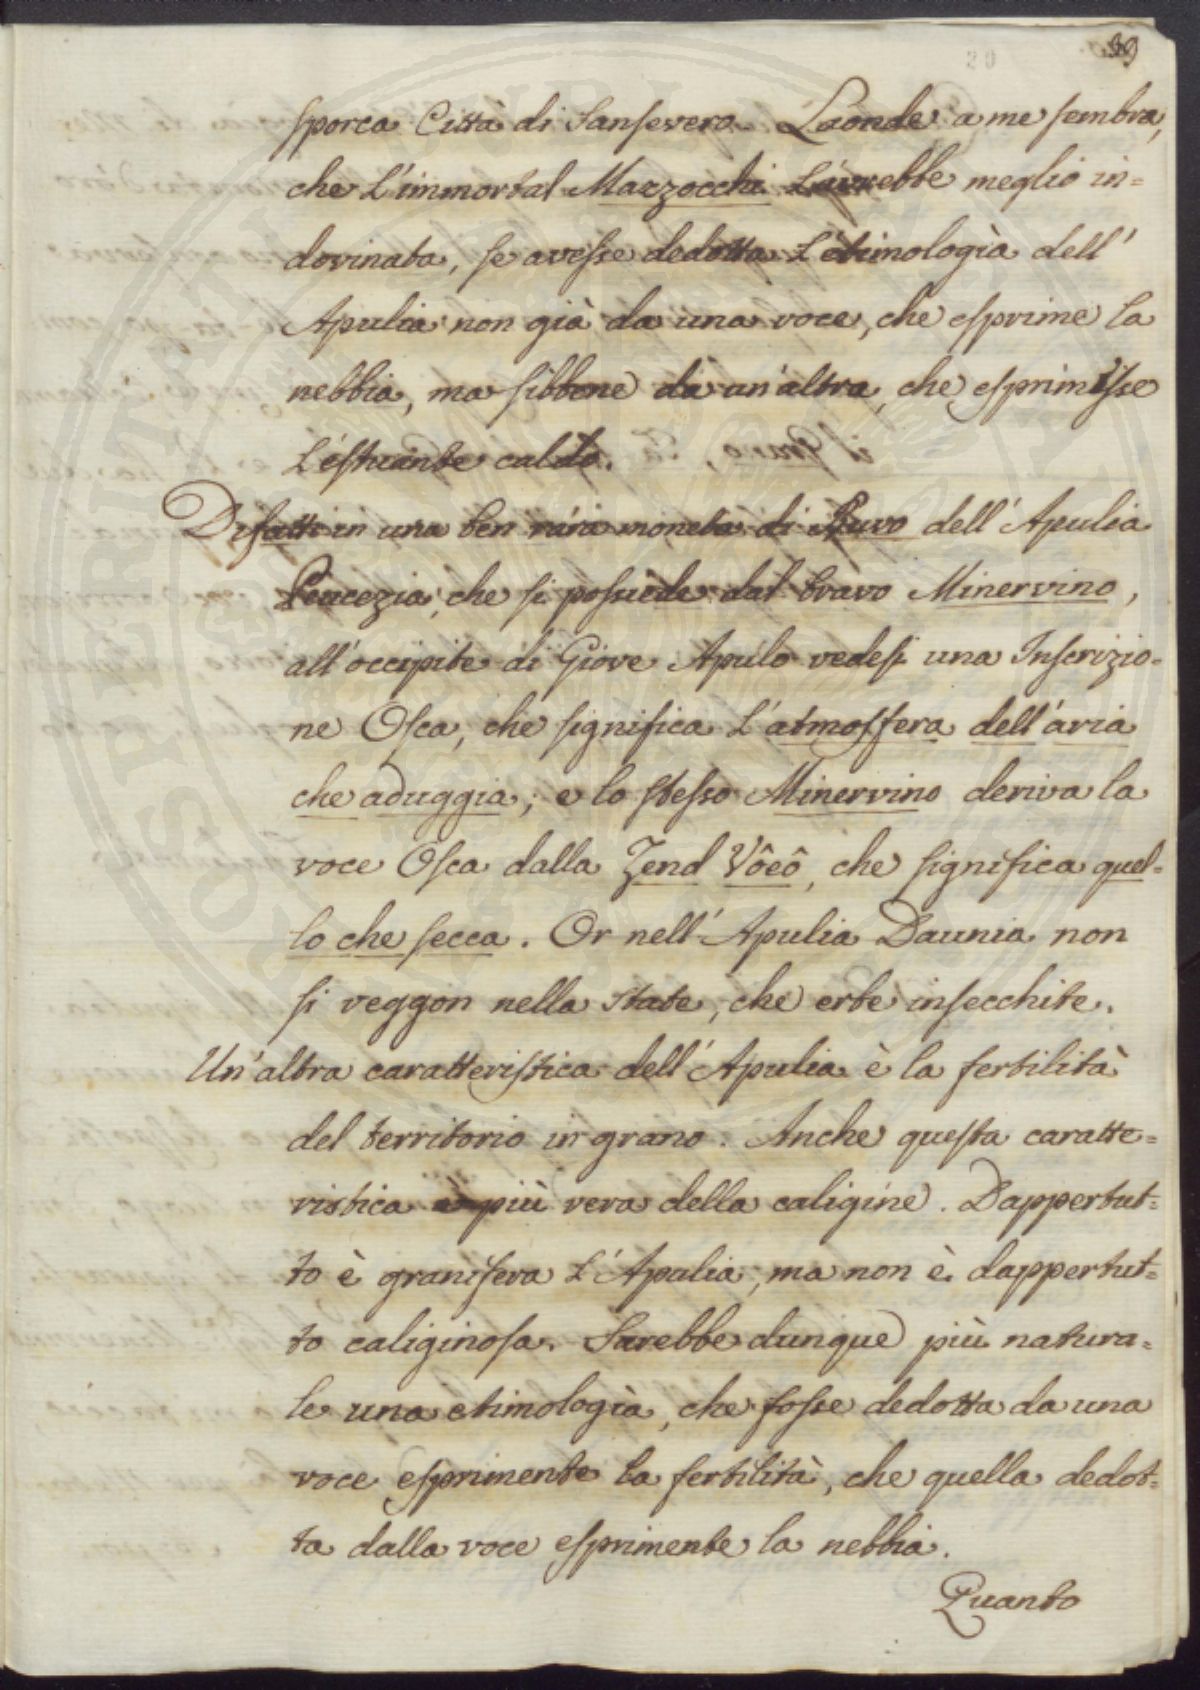 20 39
sporca Città di Sansevero. Laonde a me sembra,
che l'immortal Mazzocchi l'avrebbe meglio in=
dovinata, se avesse dedotta l'etimologìa dell'
Apulia non già da una voce, che esprime la
nebbia, ma sibbene da un'altra, che esprimesse
l'estuante caldo.
Difatti in una ben rara moneta di Ruvo dell'Apulia
Peucezia, che si possiede dal bravo Minervino,
all'occipite di Giove Apulo vedesi una Inscrizio=
ne Osca, che significa l'atmosfera dell'aria
che aduggia; e lo stesso Minervino deriva la
voce Osca dalla Zend Vôeô, che significa quel=
lo che secca. Or nell'Apulia Daunia non
si veggon nella state, che erbe insecchite.
Un'altra caratteristica dell'Apulia è la fertilità
del territorio in grano. Anche questa caratte=
ristica è più vera della caligine. Dappertut=
to è granifera l'Apulia, ma non è dappertut=
to caliginosa. Sarebbe dunque più natura=
le una etimologìa, che fosse dedotta da una
voce esprimente la fertilità, che quella dedot=
ta dalla voce esprimente la nebbia.
Quanto